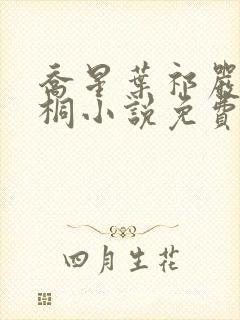 喬星葉祁嚴
桐小說免費
四月生花